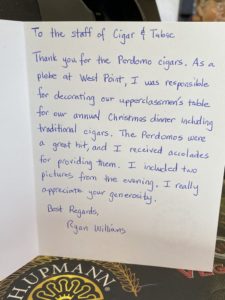 To the staff of Cigar & Tabac
Thank you for the Perdomo cigars. As a
plebe at West Point, I was responsible
for decorating our upperclassmen's table
for our annual Christmas dinner including
traditional cigars. The Perdomos were
a great hit, and I received accolades
for providing them. I included two
pictures from the evening. I really
appreciate your generosity.
Best Regards,
Ryan Williams
H.UPMANN